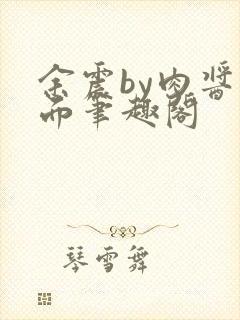 余震by肉酱
而笔趣阁
琴雪舞